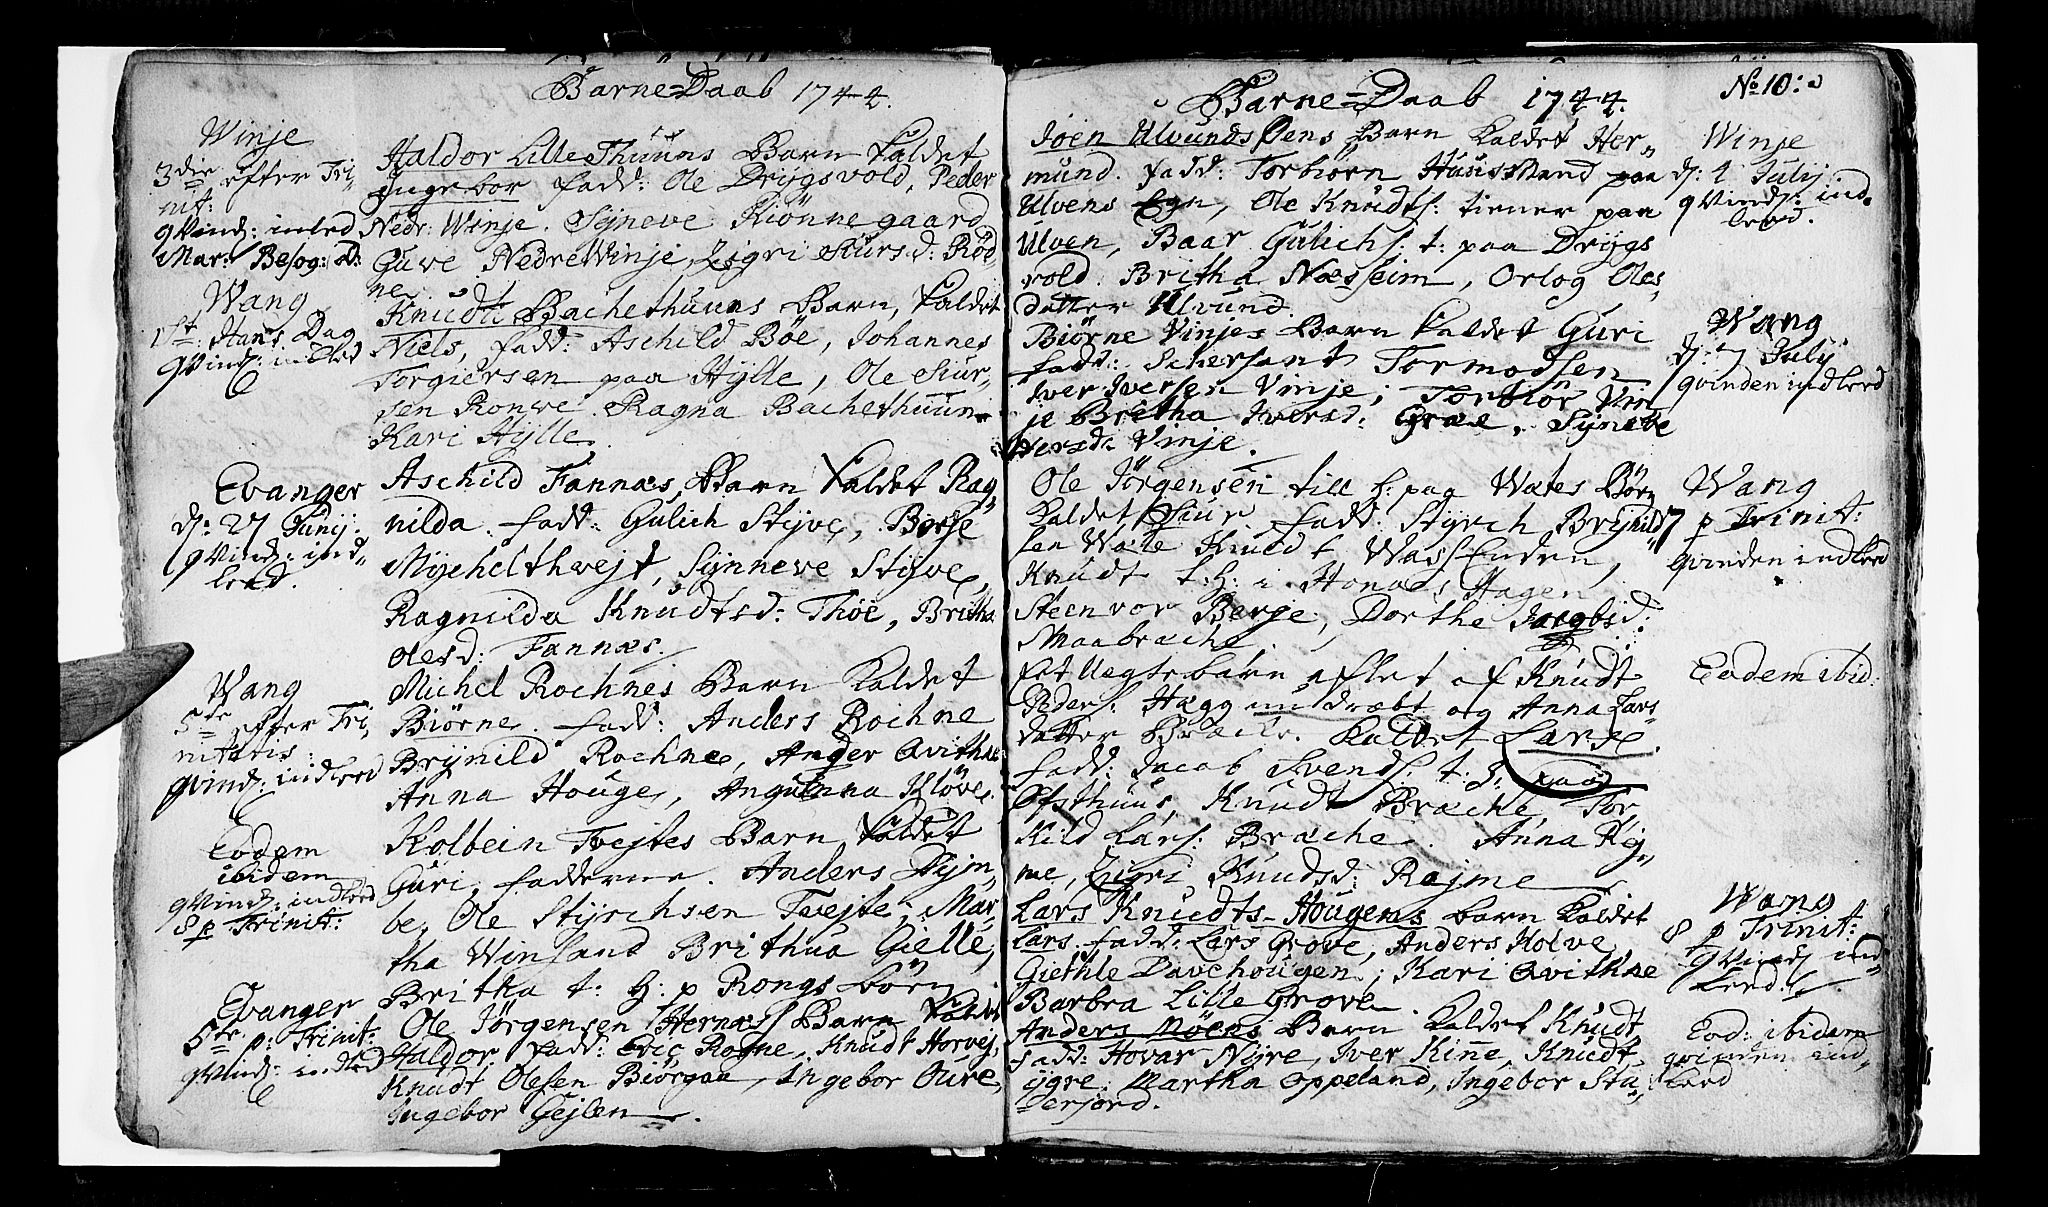 Barne-Daab 1744.
Winje
3die efter Tri-
nit:
qvind: inled
Mar: Besog: D:
Haldor Lille Thuuns Barn kaldet
Ingebor fadd: Ole Drygsvold, Peder
Nedr: Winje. Syneve Kiönnegaard
Guve Nedre Winje, Sigri Siurs d: Röe-
ne
Wang
1st: Hans Dag
qvind: indled
Knudt Bachethuuns Barn, kaldet
Niels, fadd: Aschild Böe, Johannes
Torgiersen paa Hylle, Ole Siur-
sen Ronwe. Ragna Bachethuun.
Kari Hylle.
Evanger
d: 27 Junij
qvind: ind-
leed.
Aschild Fannæs Barn kaldet Rag-
nilda. fadd: Gulich Styve, Börje
Mychelthvejt, Synneve Styve,
Ragnilda Knudtsd: Thöe, Britha
Olesd: Fannæs.
Wang
5te efter Tri
nitatis:
qvind: indleed
Michel Rochnes Barn kaldet
Biörne. fadd: Anders Rochne
Brynild Rochne, Ander Qvithne
Anna Houge, Angunna Klöve.
Eodem
ibidem
qvind: indleed
8 p Trinit:
Kolbein Tvejtes Barn kaldet
Guri, fadderne. Anders Gjm-
be, Ole Styrchsen Tvejte, Mar-
tha Winsand Brithua Gielle,
Britha t: h: p Rongs börn
Evanger
5te p: Trinit:
qvind: indled
Ole Jörgensen Hernæss Barn kaldet
Haldor. fadd: Eric Rogne, Knudt Horvej,
Knudt Olesen Biörgaa, Ingebor Oure,
Ingebor Gejlen.
Barne-Daab 1744.
No 10:
Joen Ulvunds Öens Barn kaldet Her-
mund. fadd: Torbiörn Huusmand paa
Ulvens Egn, Ole Knudts: tiener paa
Ulven, Baar Gulichs: t: paa Drygs
vold. Britha Næsseim, Orlog Oles-
datter Ulvund.
Winje
d: 1 July
qvind: ind-
leed.
Biörne Vinjes Barn kaldet Guri
fadd: Schersant Tormodsen
Iver Iversen Vinje; Torbiör Vin
je Britha Iversd: Græe. Syneve
Iversd: Vinje.
Wang
d: 7 July
qvinden indleed
Ole Jörgensen till h: paa Wætes Börn
kaldet Siur. fadd: Styrch Brynild-
sen Wæte Knudt Wassenden,
Knudt t: h: i Honæs Hagen
Steenvor Berje, Dorthe Jacobsd:
Maabrache.
Wang
7 p Trinit:
qvinden indleed
Et Uegte barn aflet af Knudt
Peders: Hægg undræbt og Anna Lars-
datter Bræcke. kaldet Larse.
fadd: Jacob Svends: t: h: paa
Ofsthuus, Knudt Bræche, Tor
kild Lars: Bræche. Anna Rej-
me, Zigri Knudsd: Rejme
Eodem ibid:
Lars Knudts-Hougens barn kaldet
Lars. fadd: Lars Grove, Anders Kolve,
Giethle Davchougen; Kari Qvithne
Barbra Lille Grove.
Wang
8 p Trinit:
qvind ind-
leed.
Anders Möens Barn kaldet Knudt
fadd: Hovar Nyre, Iver Kinne, Knudt
ygre. Martha Oppeland, Ingebor Sta-
derjord.
Eod: ibidem
qvinden ind-
leed